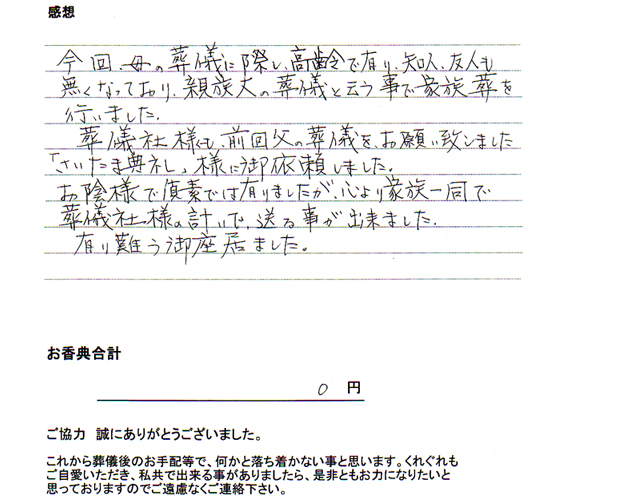 感想
今回、母の葬儀に際し、高齢で有り、知人、友人も
無くなっており、親族丈の葬儀と云う事で家族葬を
行いました。
葬儀社様も、前回父の葬儀を、お願い致しました
「さいたま典礼」様に御依頼しました。
お陰様で質素では有りましたが、心より家族一同で
葬儀社様の計いで、送る事が出来ました。
有り難う御座居ました。
お香典合計
0 円
ご協力 誠にありがとうございました。
これから葬儀後のお手配等で、何かと落ち着かない事と思います。くれぐれも
ご自愛いただき、私共で出来る事がありましたら、是非ともお力になりたいと
思っておりますのでご遠慮なくご連絡下さい。